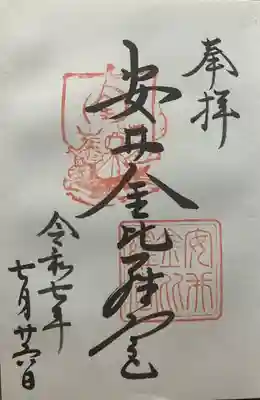 奉拝
安井金比羅宮
令和七年
七月廿六日